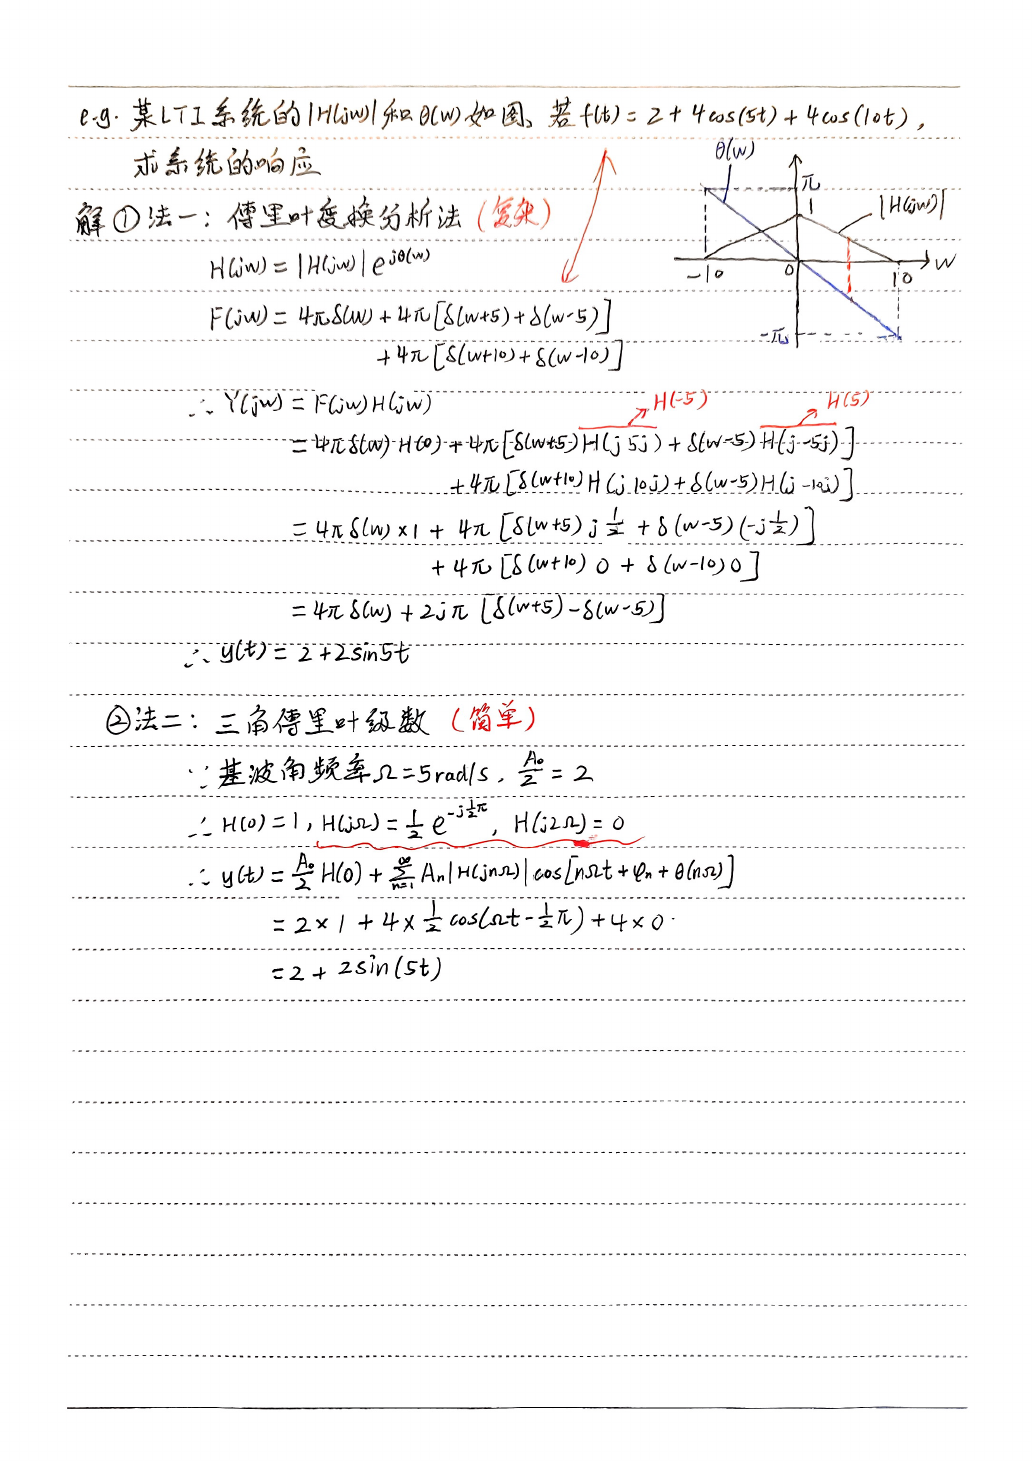 e.g. 某LTI系统的|H(jw)|和θ(w)如图、若f(t)=2+4cos(5t)+4cos(10t),
求系统的响应
θ(w)
π
1
|H(jw)|
-10
0
10
w
-π
解①法一:傅里叶变换分析法(复杂)
H(jw)=|H(jw)|e^{jθ(w)}
F(jw)=4πδ(w)+4π[δ(w+5)+δ(w-5)]
+4π[δ(w+10)+δ(w-10)]
H(-5)
H(5)
∴ Y(jw)=F(jw)H(jw)
=4πδ(w)·H(0)+4π[δ(w+5)H(j5j)+δ(w-5)H(j-5j)]
+4π[δ(w+10)H(j10j)+δ(w-5)H(j-10j)]
=4πδ(w)×1+4π[δ(w+5)j½+δ(w-5)(-j½)]
+4π[δ(w+10)0+δ(w-10)0]
=4πδ(w)+2jπ[δ(w+5)-δ(w-5)]
∴ y(t)=2+2sin5t
②法二:三角傅里叶级数(简单)
∵基波角频率Ω=5rad/s,A₀/2=2
∴ H(0)=1,H(jΩ)=½e^{-j½π},H(j2Ω)=0
∴ y(t)=A₀/2 H(0)+∑_{n=1}^{∞}Aₙ|H(jnΩ)|cos[nΩt+φₙ+θ(nΩ)]
=2×1+4×½cos(Ωt-½π)+4×0
=2+2sin(5t)